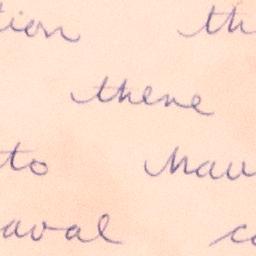 tion th
there
to hau
aval co